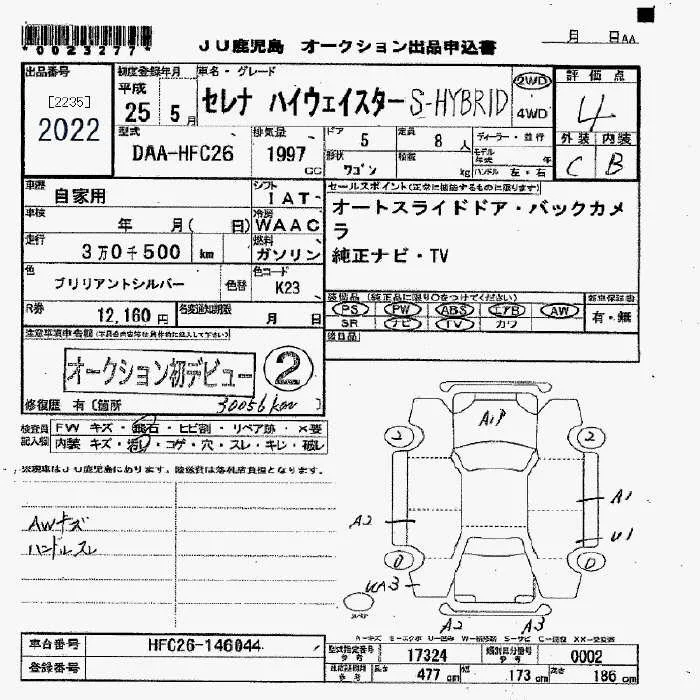 *0023277*
JU鹿児島 オークション出品申込書
月 日AA
出品番号
[2235]
2022
初度登録年月
平成
25 5月
車名・グレード
セレナ ハイウェイスター S-HYBRID
2WD
4WD
評価点
4
外装 内装
C B
型式
DAA-HFC26
排気量
1997
CC
ドア 5
定員 8 人
形状 ワゴン
積載 kg
ディーラー・並行
モデル年式 年
ハンドル 左・右
車歴
自家用
シフト
IAT
車検
年 月( 日)
冷房
WAAC
走行
3万0千500 km
燃料
ガソリン
色
ブリリアントシルバー
色替
色コード
K23
R券
12,160円
名変通知期限
月 日
セールスポイント(正常に機能するものに限ります)
オートスライドドア・バックカメ
ラ
純正ナビ・TV
装備品 (純正品に限り〇をつけてください)
PS PW ABS エアB AW
SR ナビ TV カワ
新車保証書
有・無
後日品
注意事項申告欄
オークション初デビュー
2
修復歴 有(箇所
30056km
検査員
記入欄
FW キズ・飛石・ヒビ割・リペア跡・X要
内装 キズ・汚レ・コゲ・穴・スレ・キレ・破レ
※現車はJU鹿児島にあります。陸送費は落札店負担となります。
AWキズ
ハンドルスレ
A1P
2 2
A1
A2
U1
UA3
A2 A3
A=キズ E=エクボ U=凹み W=補修跡 S=サビ C=腐食 XX=交換済
車台番号
HFC26-146044
登録番号
型式指定番号
17324
類別区分番号
0002
長さ 477 cm 幅 173 cm 高さ 186 cm